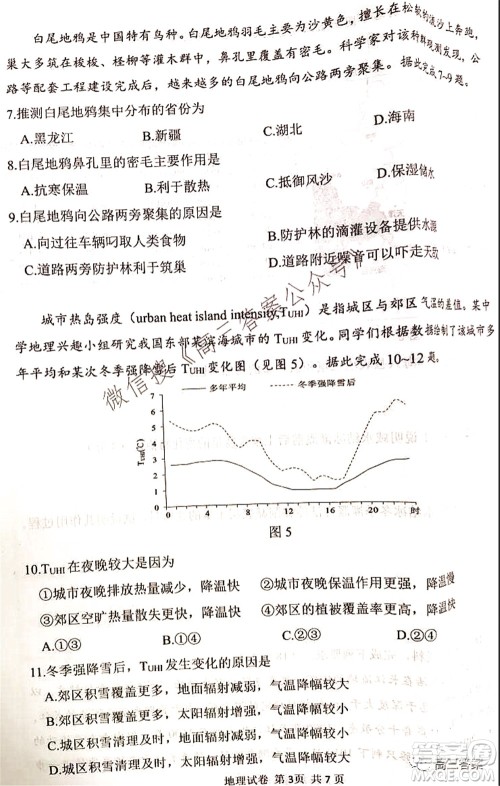 白尾地鸦是中国特有鸟种。白尾地鸦羽毛主要为沙黄色，擅长在松软的流沙上奔跑，
巢大多筑在梭梭、柽柳等灌木群中，鼻孔里的密毛发达。科学家对该种群观测发现，公
路等配套工程建设完成后，越来越多的白尾地鸦向公路两旁聚集。据此完成7~9题。
7.推测白尾地鸦集中分布的省份为
A.黑龙江 B.新疆 C.湖北 D.海南
8.白尾地鸦鼻孔里的密毛主要作用是
A.抗寒保温 B.利于散热 C.抵御风沙 D.保湿储水
9.白尾地鸦向公路两旁聚集的原因是
A.向过往车辆叼取人类食物 B.防护林的滴灌设备提供水源
C.道路两旁防护林利于筑巢 D.道路附近噪音可以吓走天敌
城市热岛强度（urban heat island intensity,TUHI）是指城区与郊区气温的差值。某中
学地理兴趣小组研究我国东部某滨海城市的TUHI变化。同学们根据数据绘制了该城市多
年平均和某次冬季强降雪后TUHI变化图（见图5）。据此完成10~12题。
多年平均 冬季强降雪后
TUHI(℃)
7
6
5
4
3
2
1
0
0 4 8 12 16 20 时
图5
10.TUHI在夜晚较大是因为
①城市夜晚排放热量减少，降温快 ②城市夜晚保温作用更强，降温慢
③郊区空旷热量散失更快，降温快 ④郊区的植被覆盖率更高，降温快
A.①③ B.①④ C.②③ D.②④
11.冬季强降雪后，TUHI发生变化的原因是
A.郊区积雪覆盖更多，地面辐射减弱，气温降幅较大
B.郊区积雪覆盖更多，太阳辐射增强，气温降幅较小
C.城区积雪清理及时，地面辐射减弱，气温降幅较大
D.城区积雪清理及时，太阳辐射增强，气温降幅较小
地理试卷 第3页 共7页
微信搜《高三答案公众号》
高三答案